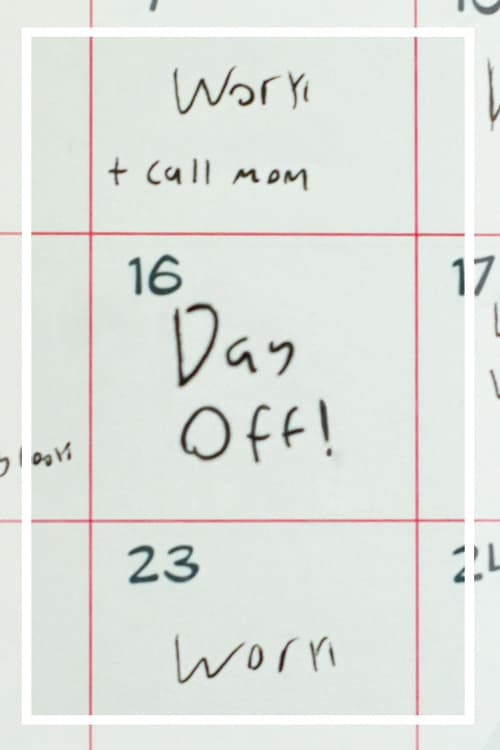 Work
+ call mom
16
17
Day
Off!
23
24
Work